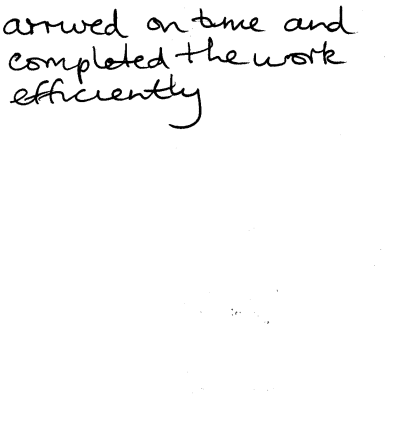 arrived on time and
completed the work
efficiently